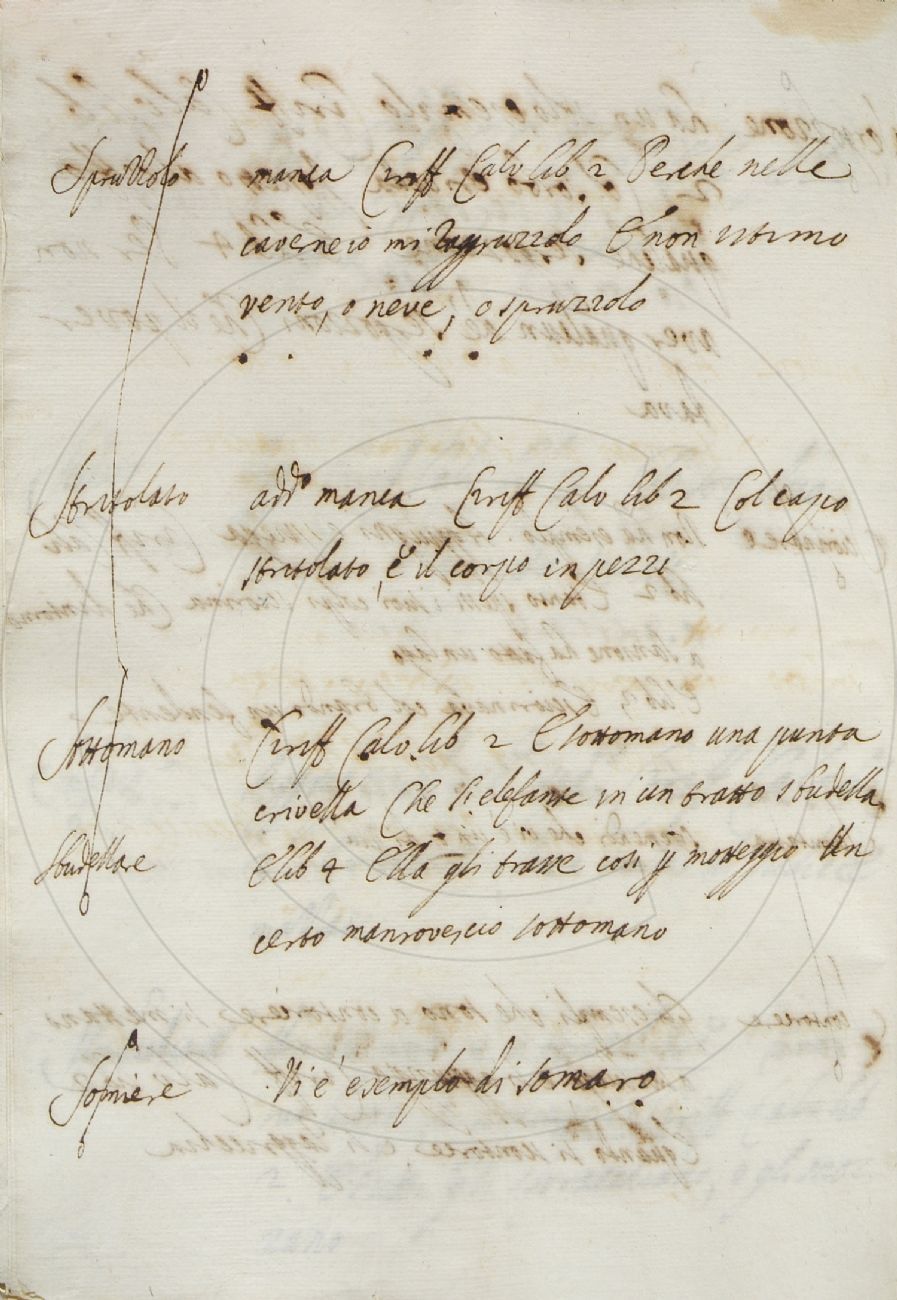 Spruzzolo manca Ciriff Calv lib 2 Perche nelle
caverne io mi raggruzzolo E non istimo
vento, o neve, o spruzzolo
Stritolato add.º manca Ciriff Calv lib 2 Col capo
stritolato, è il corpo in pezzi
Sottomano Ciriff Calv. lib 2 E sottomano una punta
crivella Che l'elefante in un tratto sbudella
Sbudellare E lib 4 Ella gli trasse così p motteggio Un
certo manrovescio sottomano
Somiere Vi è esemplo di somaro